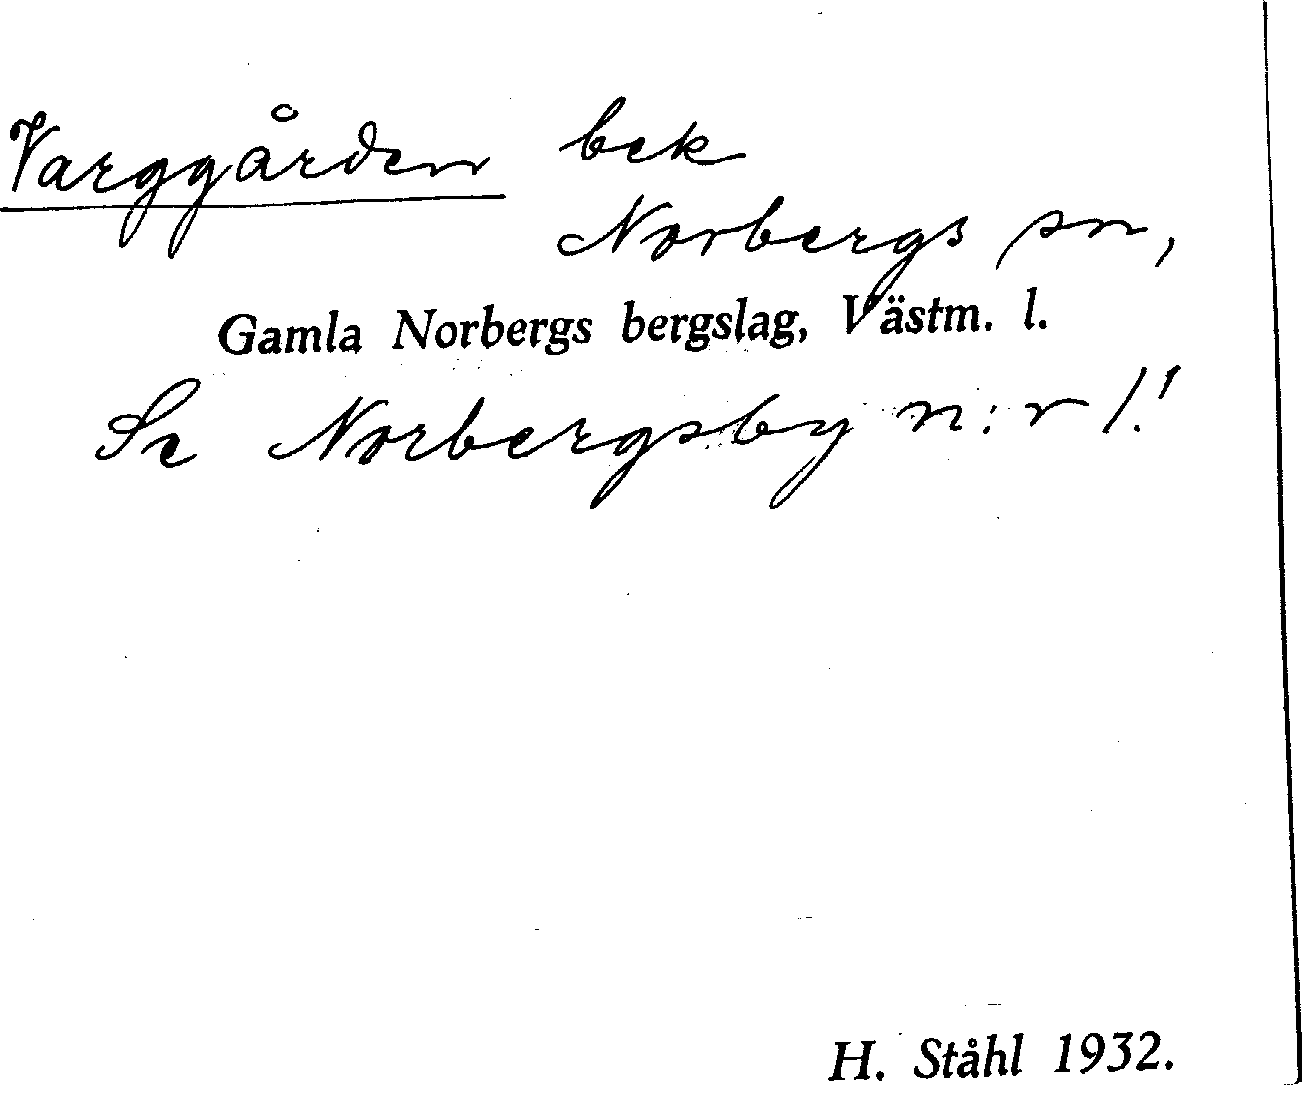 Varggården bek
Norbergs sn,
Gamla Norbergs bergslag, Västm. l.
Se Norbergsby n:r 1!
H. Ståhl 1932.